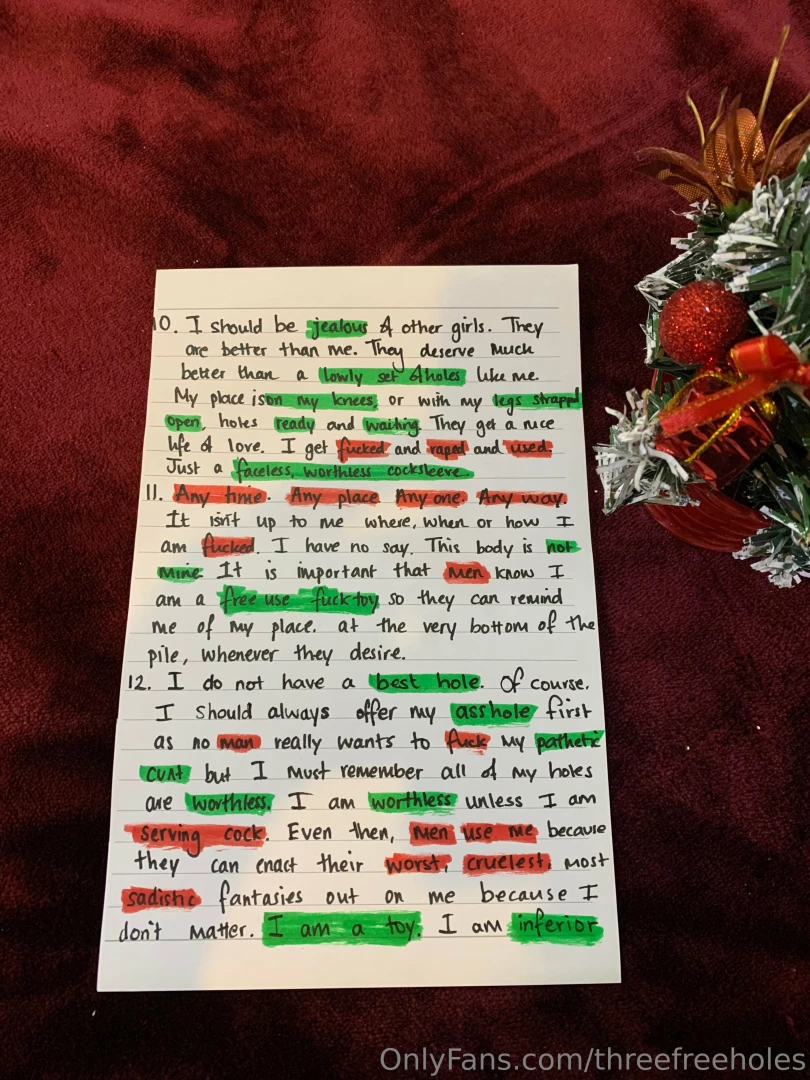 10. I should be jealous of other girls. They
are better than me. They deserve much
better than a lowly set of holes like me.
My place is on my knees, or with my legs strapped
open, holes ready and waiting. They get a nice
life of love. I get fucked and raped and used.
Just a faceless, worthless cocksleeve.
11. Any time. Any place Any one. Any way.
It isn't up to me where, when or how I
am fucked. I have no say. This body is not
mine It is important that men know I
am a free use fucktoy, so they can remind
me of my place. at the very bottom of the
pile, whenever they desire.
12. I do not have a best hole. Of course,
I should always offer my asshole first
as no man really wants to fuck my pathetic
cunt but I must remember all of my holes
are worthless. I am worthless unless I am
serving cock. Even then, men use me because
they can enact their worst, cruelest, most
sadistic fantasies out on me because I
don't matter. I am a toy. I am inferior
OnlyFans.com/threefreeholes